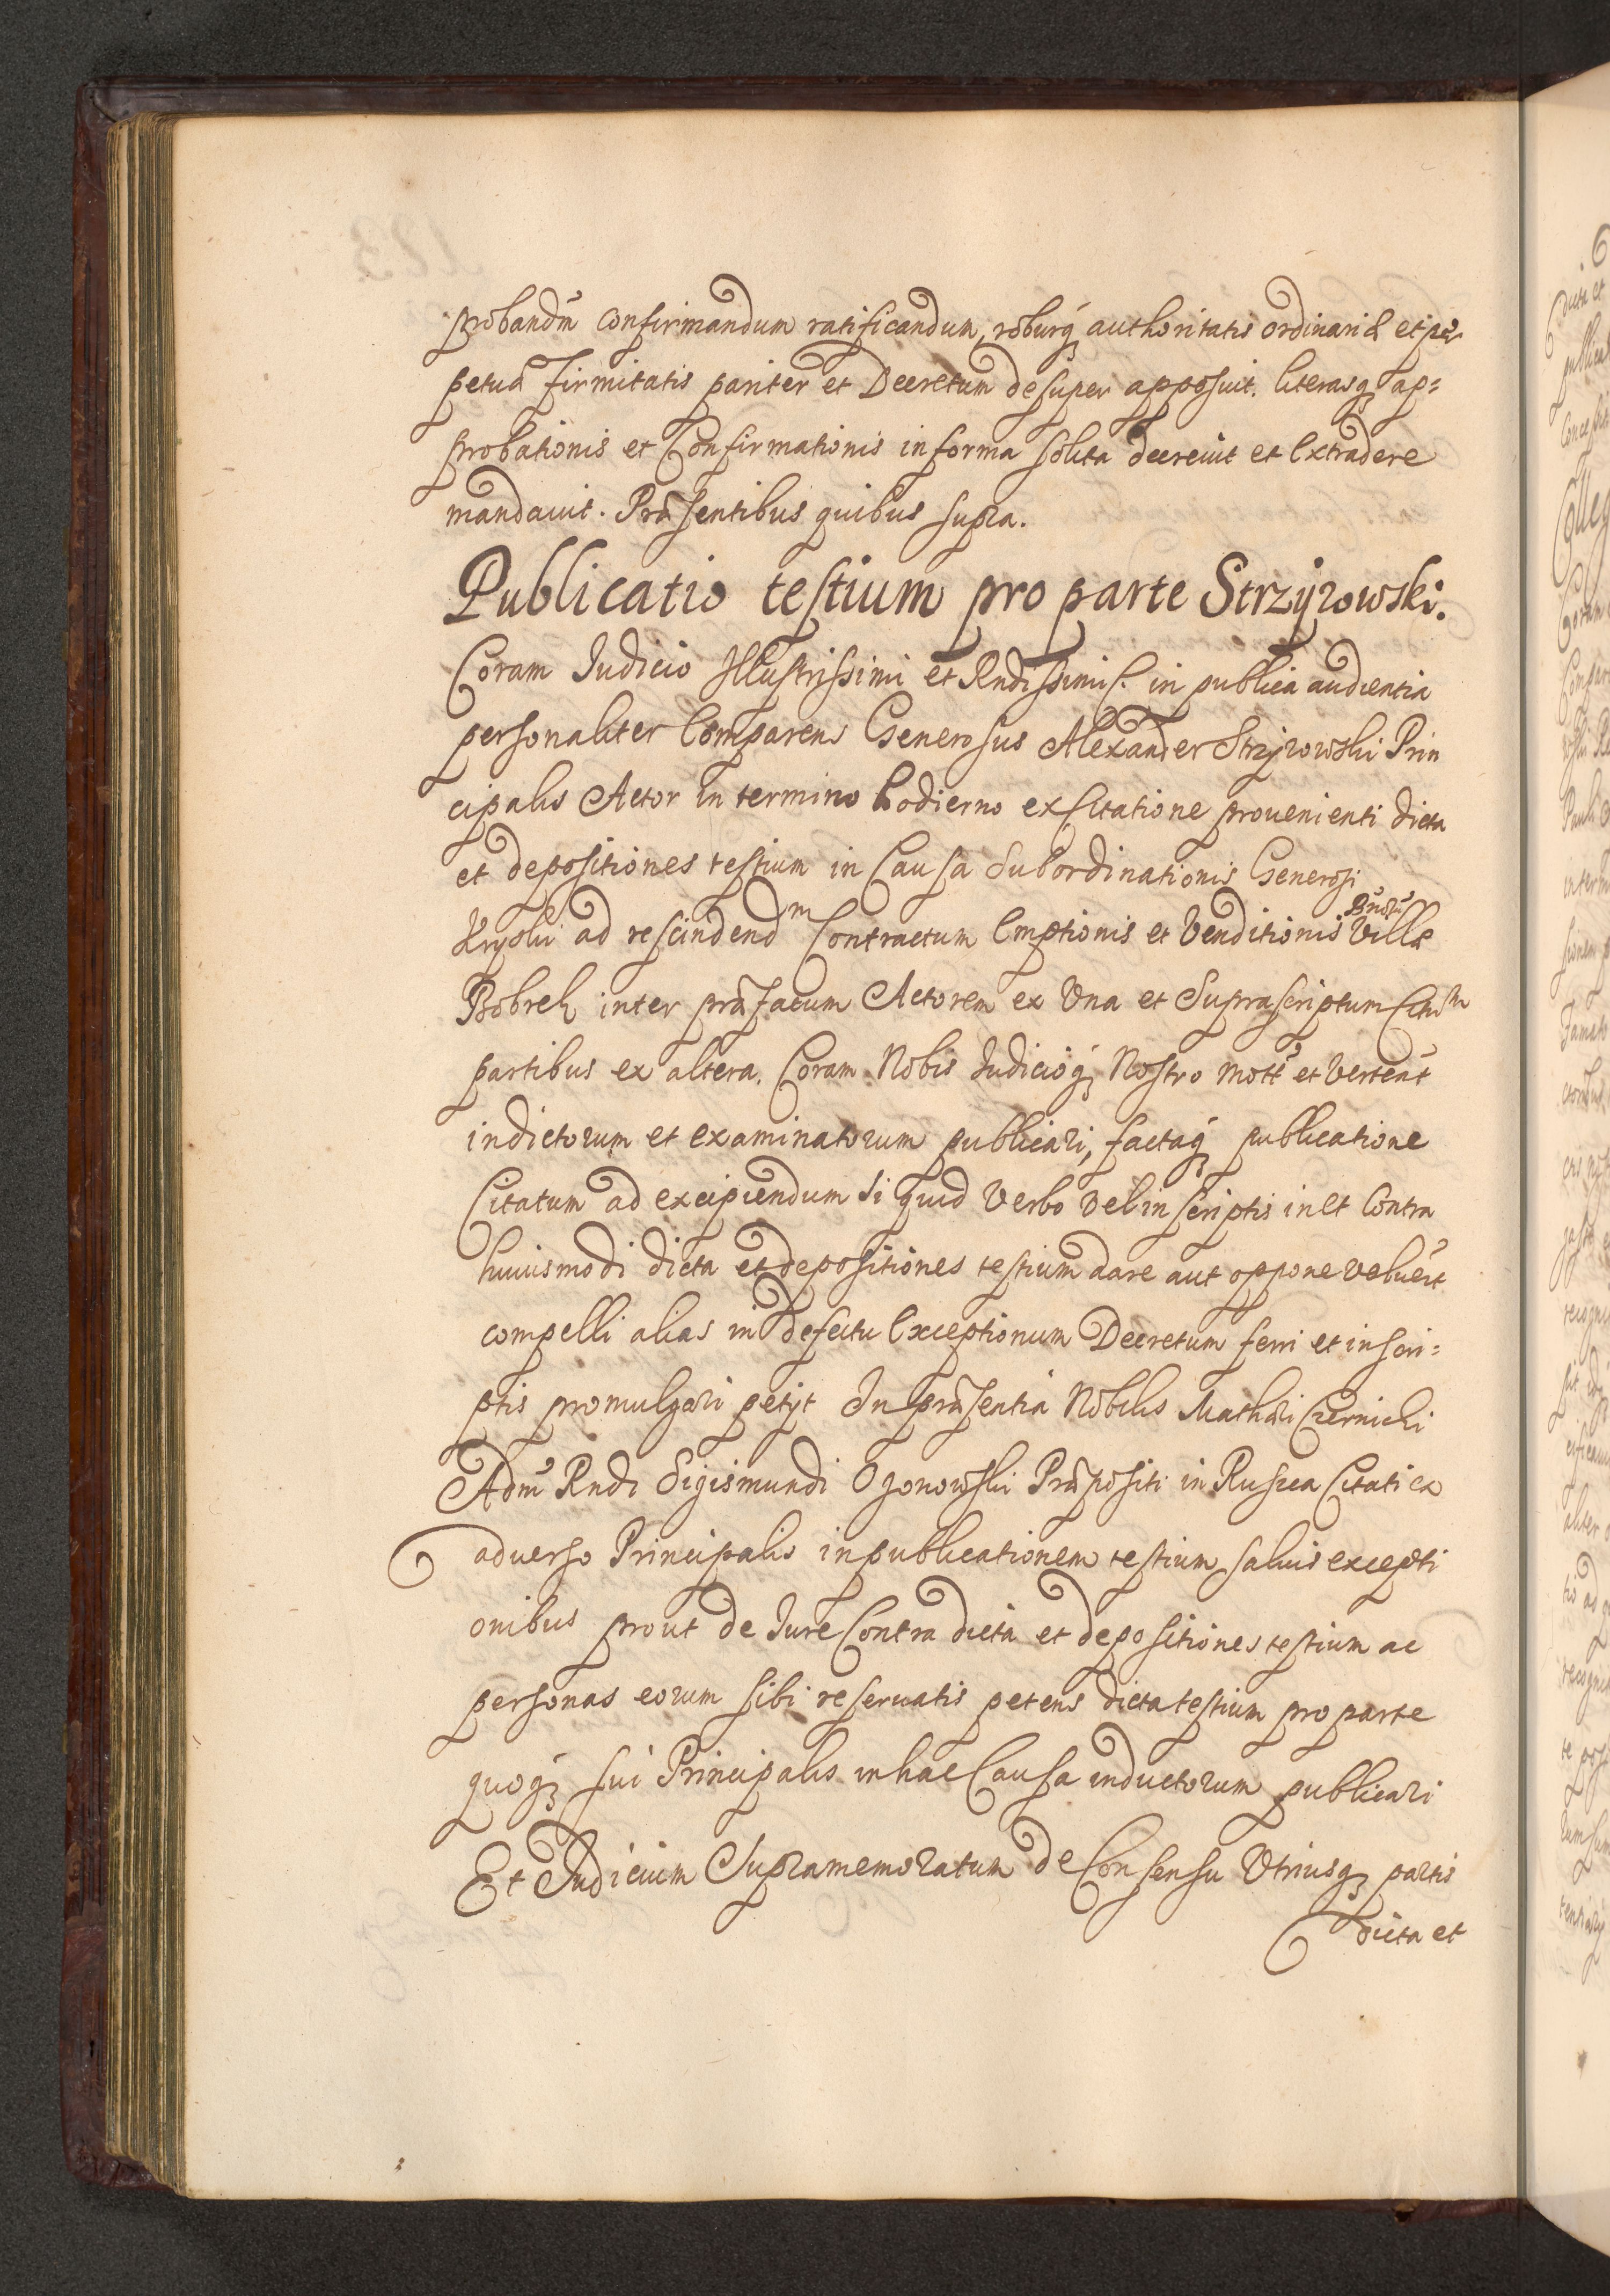 probandū confirmandum ratificandum, roburq́ authoritatis ordinariæ et per
petuæ firmitatis pariter et Decretum desuper apposuit. literasq́ ap=
probationis et Confirmationis in forma solita decreuit et Extradere
mandauit. Præsentibus quibus supra.
Publicatio testium pro parte Strzyżowski.
Coram Iudicio Illustrissimi et Rndissimi S. in publica audientia
personaliter Comparens Generosus Alexander Strzyżowski Prin
cipalis Actor in termino hodierno ex Citatione prouenienti dicta
et depositiones testium in Causa Subordinationis Generosi
ad rescindendm Contractum Emptionis et Venditionis Villæ
Bobrek inter præfatum Actorem ex Una et Suprascriptum Citm
partibus ex altera. Coram Nobis Iudicioq́ Nostro mott̄ et Vertent̄
indictorum et examinatorum publicari, factaq́ publicatione
Citatum ad excipiendum si quid Verbo vel in scriptis in et Contra
huiusmodi dicta et depositiones testium dare aut oppone voluer̄t
compelli alias in defectu Exceptionum Decretum ferri et in scri=
ptis promulgari petijt In præsentia Nobilis Mathæi Czernicki
Adm̄ Rndi Sigismundi Ozonowski Præpositi in Ruszca Citati ex
aduerso Principalis in publicationem testium saluis excepti
onibus prout de Iure Contra dicta et depositiones testium ac
personas eorum sibi reseruatis petens dicta testium pro parte
quoq́ sui Principalis in hac Causa inductorum publicari
Et Iudicium Supramemoratum de Consensu Utriusq́ partis
dicta et